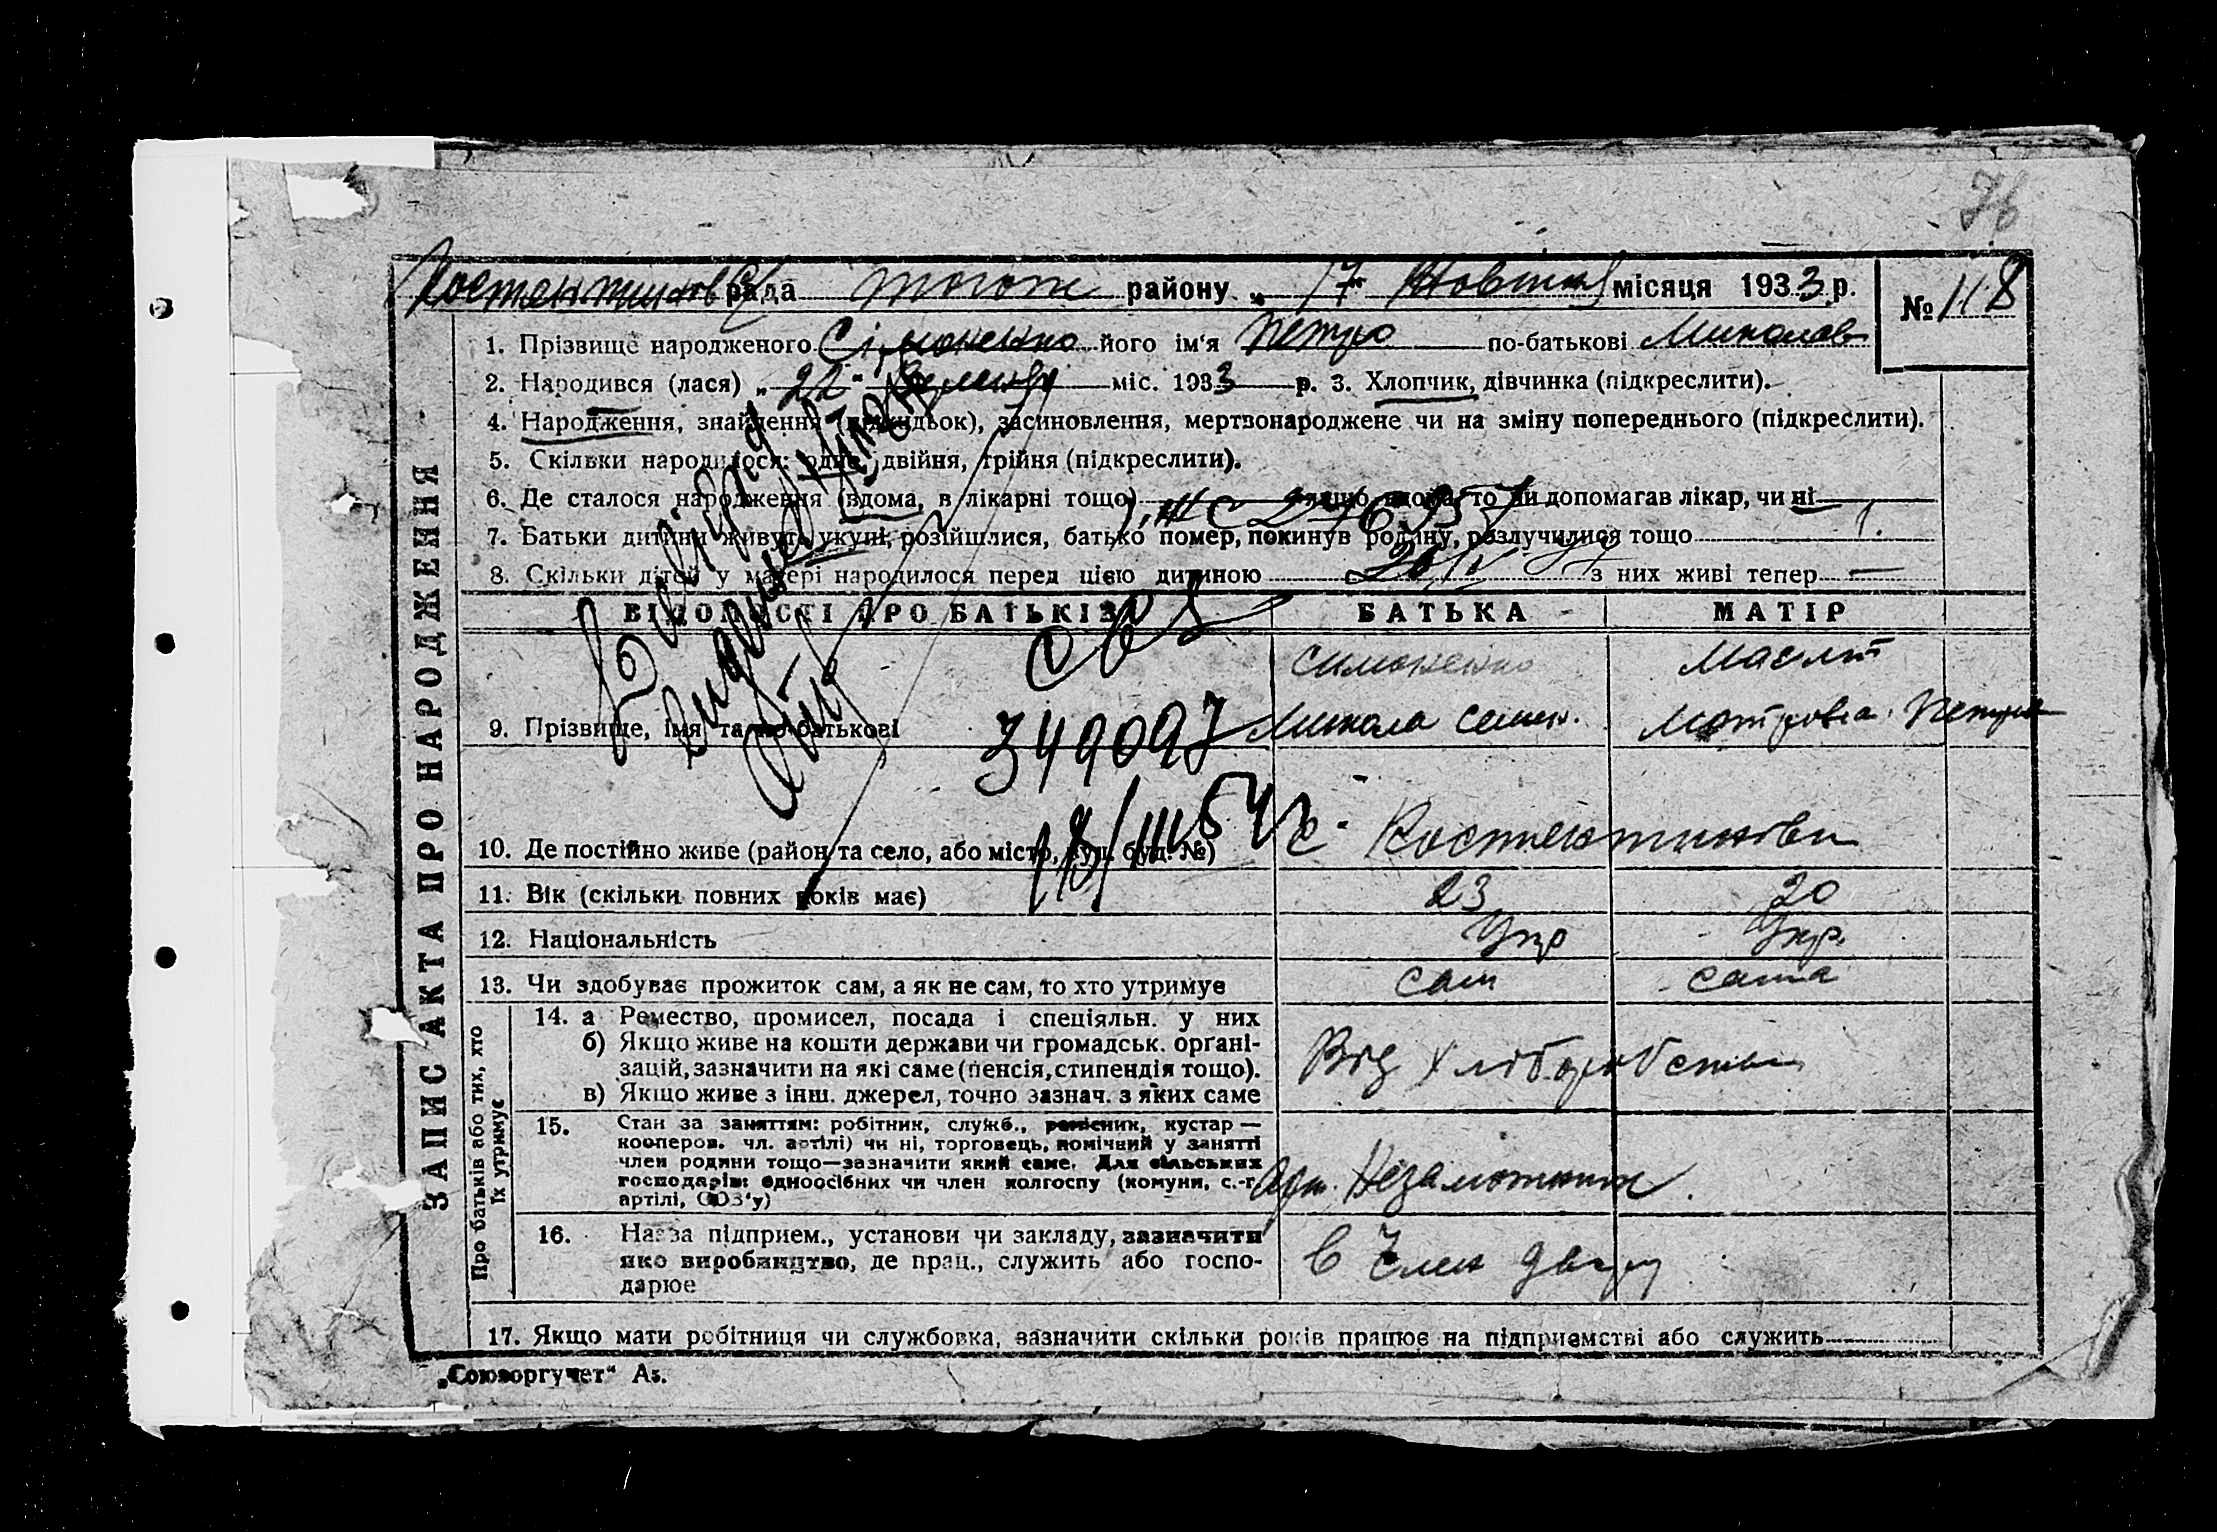 76
рада району „ 17 " Жовтня місяця 1933 р. № 118
ЗАПИС АКТА ПРО НАРОДЖЕННЯ
1. Прізвище народженого Сімоненко його ім'я Петро по-батькові Миколов
2. Народився (лася) „ 22 " міс. 1933 р. 3. Хлопчик, дівчинка (підкреслити).
4. Народження, знайдення (підкидьок), засиновлення, мертвонароджене чи на зміну попереднього (підкреслити).
5. Скільки народилося: одне, двійня, трійня (підкреслити).
6. Де сталося народження (вдома, в лікарні тощо) якщо вдома, то чи допомагав лікар, чи ні
7. Батьки дитини живуть укупі, розійшлися, батько помер, покинув родину, розлучилися тощо
8. Скільки дітей у матері народилося перед цією дитиною з них живі тепер —
ВІДОМОСТІ ПРО БАТЬКІВ БАТЬКА МАТІР
Симоненко
9. Прізвище, імя та по-батькові Микола Семен.
349097
18/III 54
10. Де постійно живе (район та село, або місто, вул. буд. №) с. Костентиновки
11. Вік (скільки повних років має) 23 20
12. Національність Укр Укр.
13. Чи здобуває прожиток сам, а як не сам, то хто утримує сам сама
Про батьків або тих, хто їх утримує
14. а Ремество, промисел, посада і спеціяльн. у них
б) Якщо живе на кошти держави чи громадськ. органі-
зацій, зазначити на які саме (пенсія, стипендія тощо).
в) Якщо живе з інш. джерел, точно зазнач. з яких саме
Від хліборобства
15. Стан за заняттям: робітник, служб., ремісник, кустар —
кооперов. чл. артілі) чи ні, торговець, помічний у занятті
член родини тощо—зазначити який саме. Для сільських
господарів: одноосібних чи член колгоспу (комуни, с.-г.
артілі, СОЗ'у)
Арт. Незаможник.
16. Назва підприєм., установи чи закладу, зазначити
яко виробництво, де прац., служить або госпо-
дарює
17. Якщо мати робітниця чи службовка, зазначити скільки років працює на підприємстві або служить
„Союзоргучет" А5.